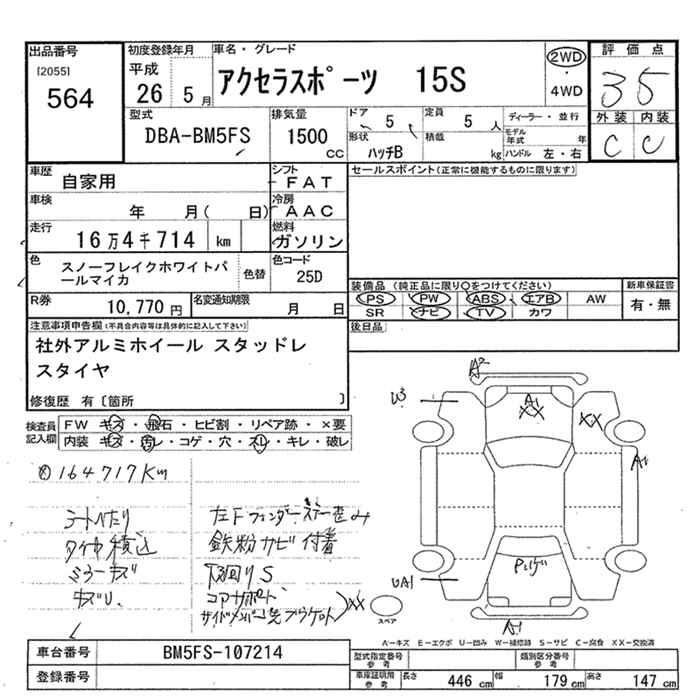 出品番号
[2055]
564
初度登録年月
平成
26 5月
車名・グレード
アクセラスポーツ 15S
2WD
・
4WD
評価点
35
外装 内装
C C
型式
DBA-BM5FS
排気量
1500
CC
ドア 5
定員 5 人
形状 ハッチB
積載 kg
ディーラー・並行
モデル年式 年
ハンドル 左・右
車歴
自家用
シフト
FAT
車検
年 月( 日)
冷房
AAC
走行
16万4千714 km
燃料
ガソリン
色
スノーフレイクホワイトパ
ールマイカ
色替
色コード
25D
R券
10,770円
名変通知期限
月 日
セールスポイント(正常に機能するものに限ります)
装備品 (純正品に限り○をつけてください)
PS PW ABS エアB AW
SR ナビ TV カワ
新車保証書
有・無
後日品
注意事項申告欄(不具合内容等は具体的に記入して下さい)
社外アルミホイール スタッドレ
スタイヤ
修復歴 有〔箇所 〕
検査員
記入欄
FW キズ・飛石・ヒビ割・リペア跡・×要
内装 キズ・汚レ・コゲ・穴・スレ・キレ・破レ
164717Km
シートへたり
タイヤ積込
ミラーキズ
キズU.
左Fフェンダーステー歪み
鉄粉カビ付着
下廻りS
コアサポート
XX
A2
W3
A1
XX
XX
A1
UA1
A1
スペア
A-キズ E-エクボ U-凹み W-補修跡 S-サビ C-腐食 XX-交換済
車台番号
BM5FS-107214
登録番号
型式指定番号
参考
類別区分番号
参考
車庫証明用
参考
長さ 446 cm
幅 179 cm
高さ 147 cm